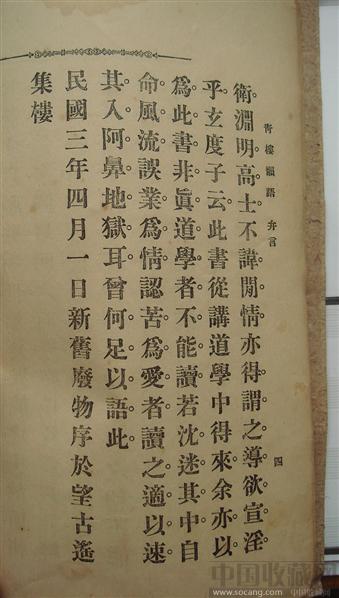 青樓韻語 弁言
四
衛淵明高士不諱閒情亦得謂之導欲宣淫
乎玄度子云此書從講道學中得來余亦以
爲此書非眞道學者不能讀若沈迷其中自
命風流誤業爲情認苦爲愛者讀之適以速
其入阿鼻地獄耳曾何足以語此
民國三年四月一日新舊廢物序於望古遙
集樓
中国收藏网
www.socang.com 中国收藏网